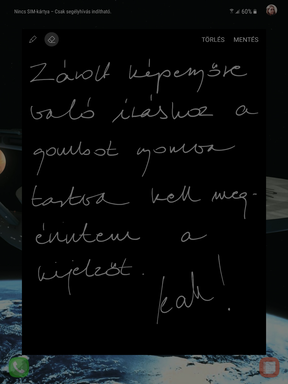 Nincs SIM-kártya – Csak segélyhívás indítható.
60%
TÖRLÉS MENTÉS
Zárolt képernyőre
való íráshoz a
gombot nyomva
tartva kell meg-
érintenem a
kijelzőt.